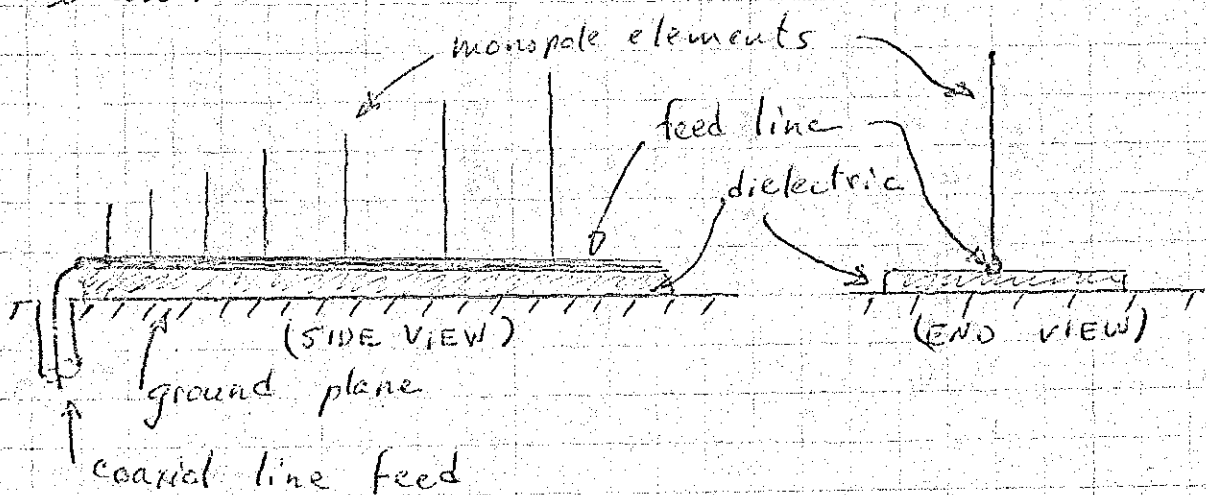 monopole elements
feed line
dielectric
(SIDE VIEW)
(END VIEW)
ground plane
coaxial line feed